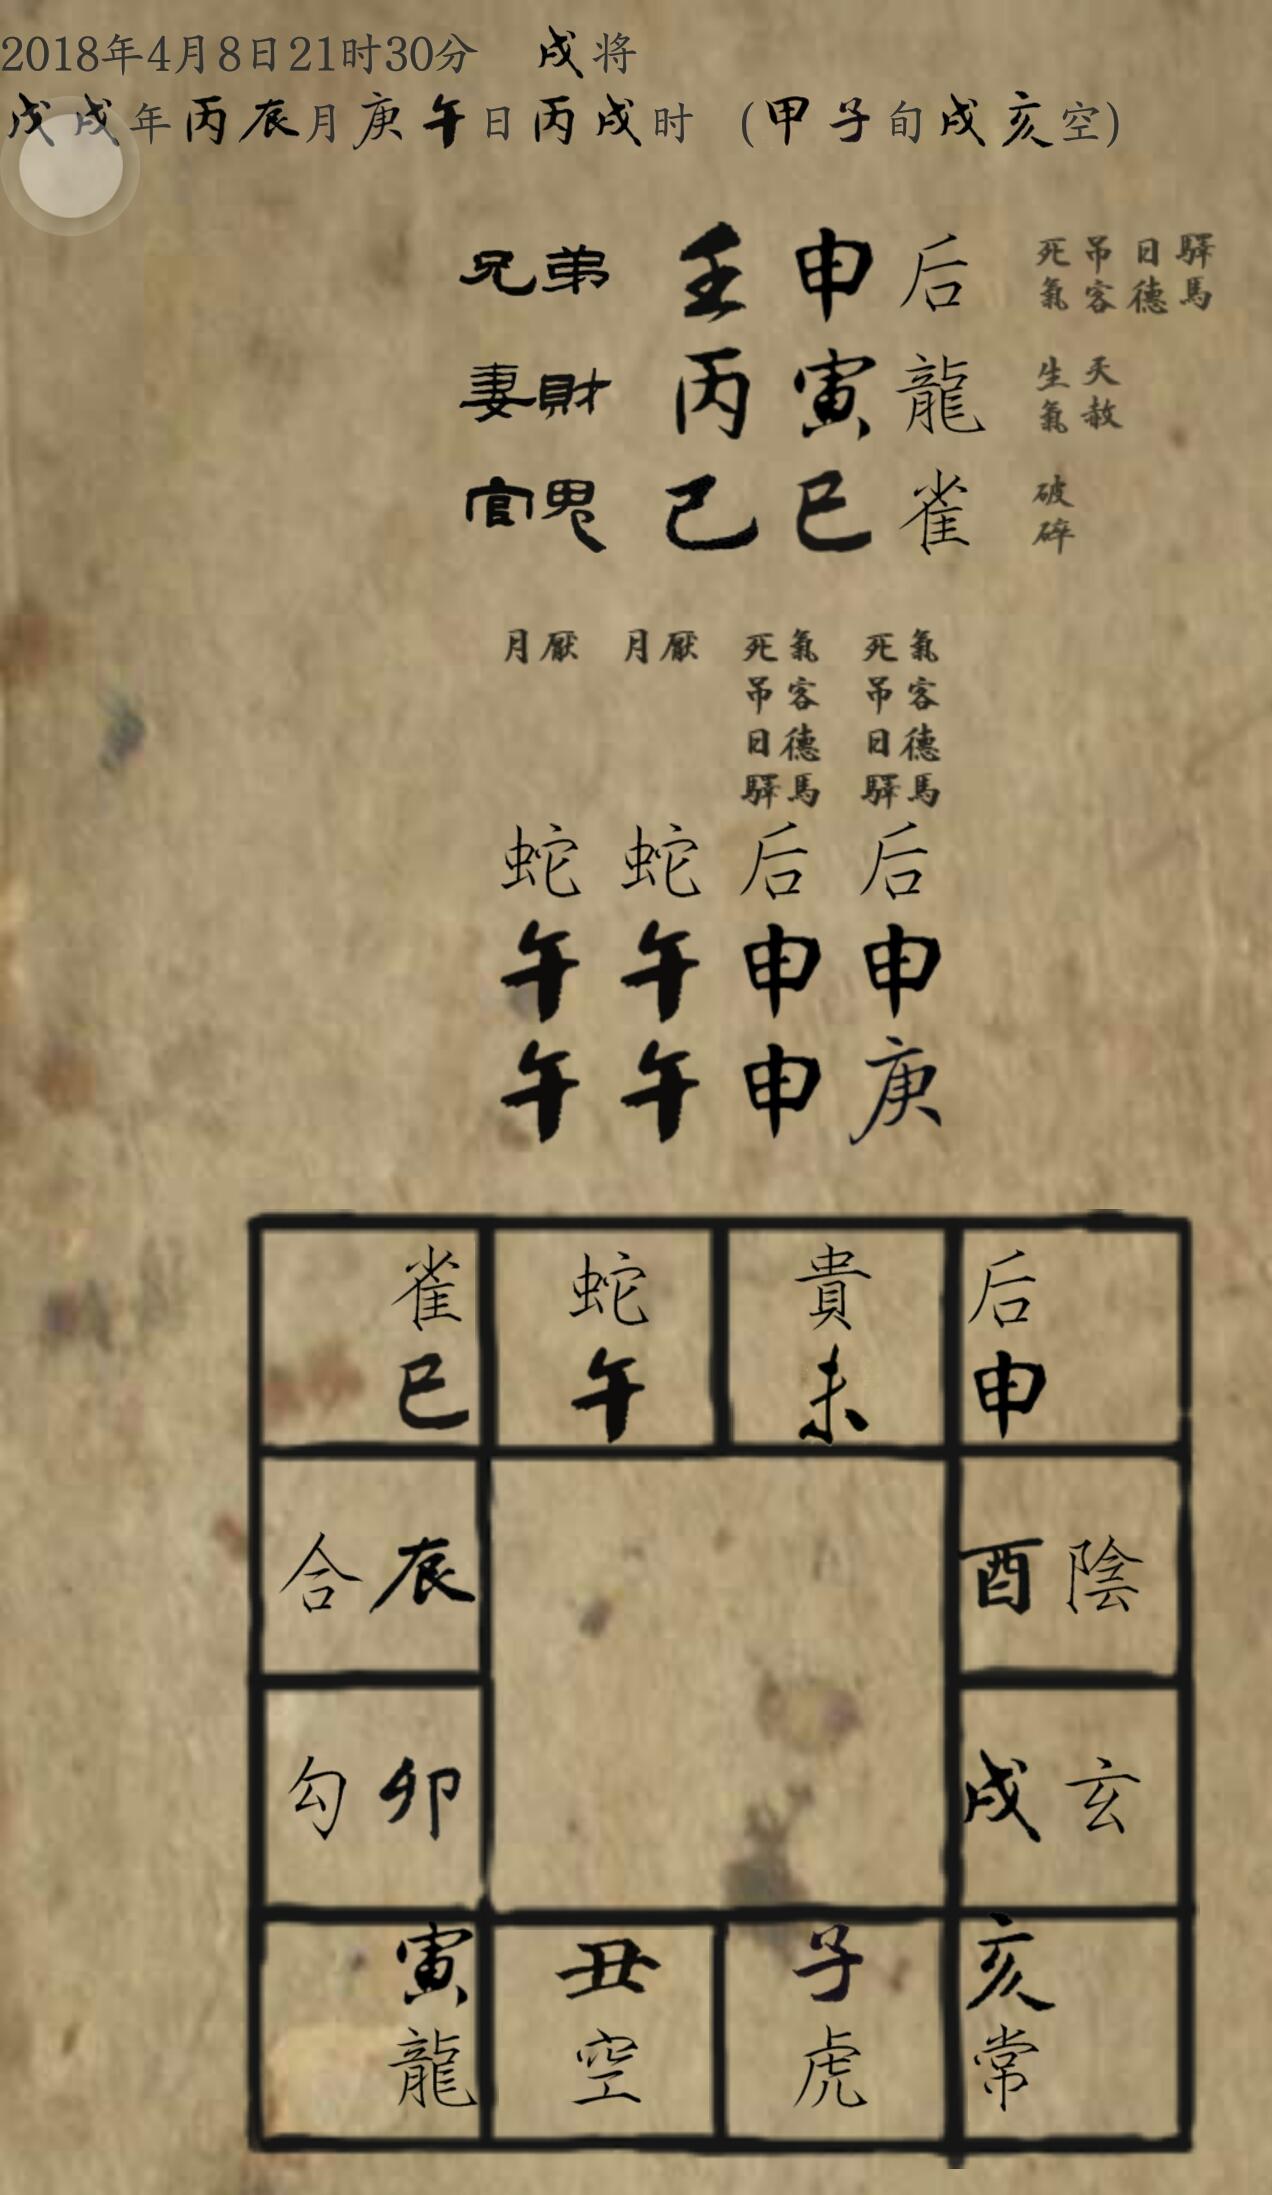 2018年4月8日21时30分 戌将
戊戌年丙辰月庚午日丙戌时 (甲子旬戌亥空)
兄弟 壬 申 后 死氣 吊客 日德 驛馬
妻財 丙 寅 龍 生氣 天赦
官鬼 己 巳 雀 破碎
月厭 月厭 死氣 死氣
吊客 吊客
日德 日德
驛馬 驛馬
蛇 蛇 后 后
午 午 申 申
午 午 申 庚
雀 蛇 貴 后
巳 午 未 申
合 辰 酉 陰
勾 卯 戌 玄
寅 丑 子 亥
龍 空 虎 常